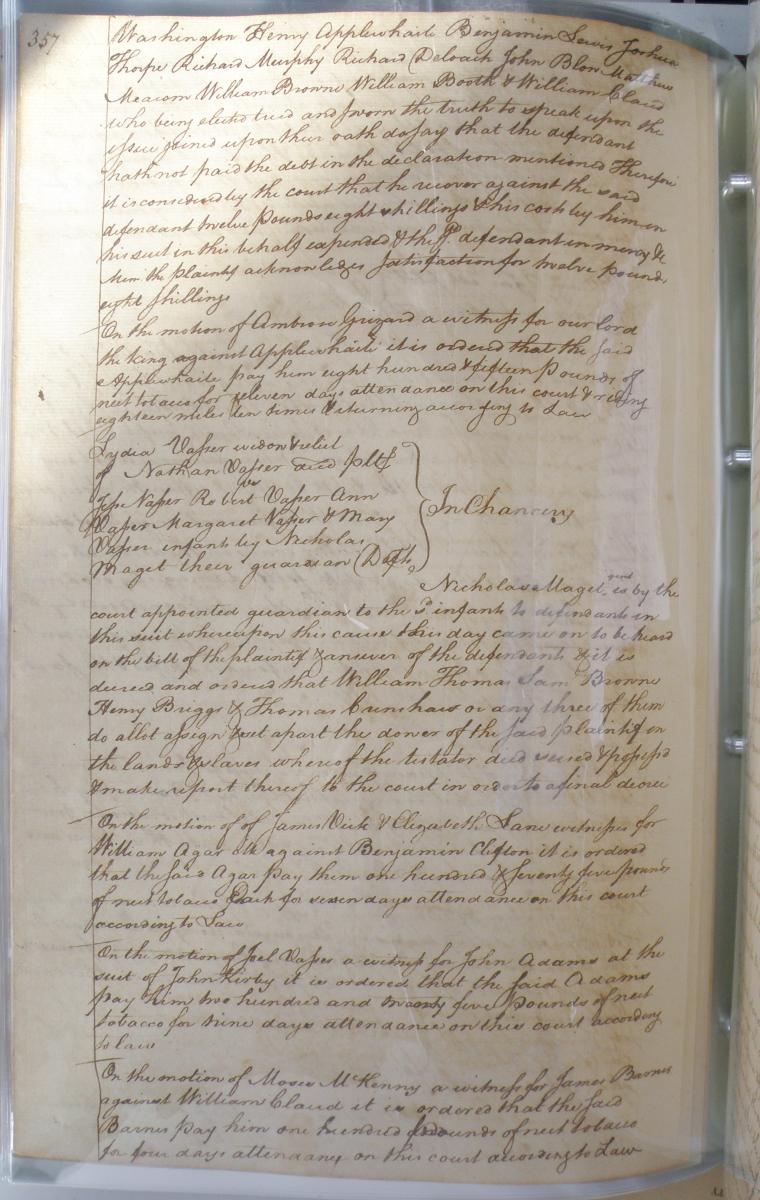 357
Washington Henry Applewhaite Benjamin Lewis Joshua
Thorpe Richard Murphy Richard Deloach John Blow Matthew
Meacom William Browne William Booth & William Claud
who being elected tried and sworn the truth to speak upon the
issue joined upon their oath do say that the defendant
hath not paid the debt in the declaration mentioned Therefore
it is considered by the court that he recover against the said
defendant twelve pounds eight shillings & his costs by him in
his suit in this behalf expended & the sd. defendant in mercy &c
the plaintif acknowledges satisfaction for twelve pounds
eight shillings
On the motion of Ambrose Grizard a witness for our lord
the king against Applewhaite it is ordered that the said
Applewhaite pay him eight hundred & fifteen pounds of
neet tobacco for eleven days attendance on this court & riding
eighteen miles ten times & returning according to Law
Lydia Vasser widow & relict
of Nathan Vasser decd pltf
vs
Jesse Vasser Robert Vasser Ann
Vasser Margaret Vasser & Mary
Vasser infants by Nicholas
Maget their guardian Defts
In Chancery
Nicholas Maget gent is by the
court appointed guardian to the sd. infants to defendants in
this suit whereupon this cause this day came on to be heard
on the bill of the plaintif & answer of the defendants & it is
decreed and ordered that William Thomas Sam Browne
Henry Briggs & Thomas or any three of them
do allot assign & set apart the dower of the said plaintif in
the lands & slaves whereof the testator died seised & possessd
& make report thereof to the court in order to a final decree
On the motion of of James Vick & Elizabeth Lane witnesses for
William Agar against Benjamin Clifton it is ordered
that the said Agar pay them one hundred & seventy five pounds
of neet tobacco Each for seven days attendance on this court
according to Law
On the motion of Joel Vasser a witness for John Adams at the
suit of John Kirby it is ordered that the said Adams
pay him two hundred and twenty five pounds of neet
tobacco for nine days attendance on this court according
to law
On the motion of Moses McKenny a witness for James Barnes
against William Claud it is ordered that the said
Barnes pay him one hundred pounds of neet tobacco
for four days attendance on this court according to Law